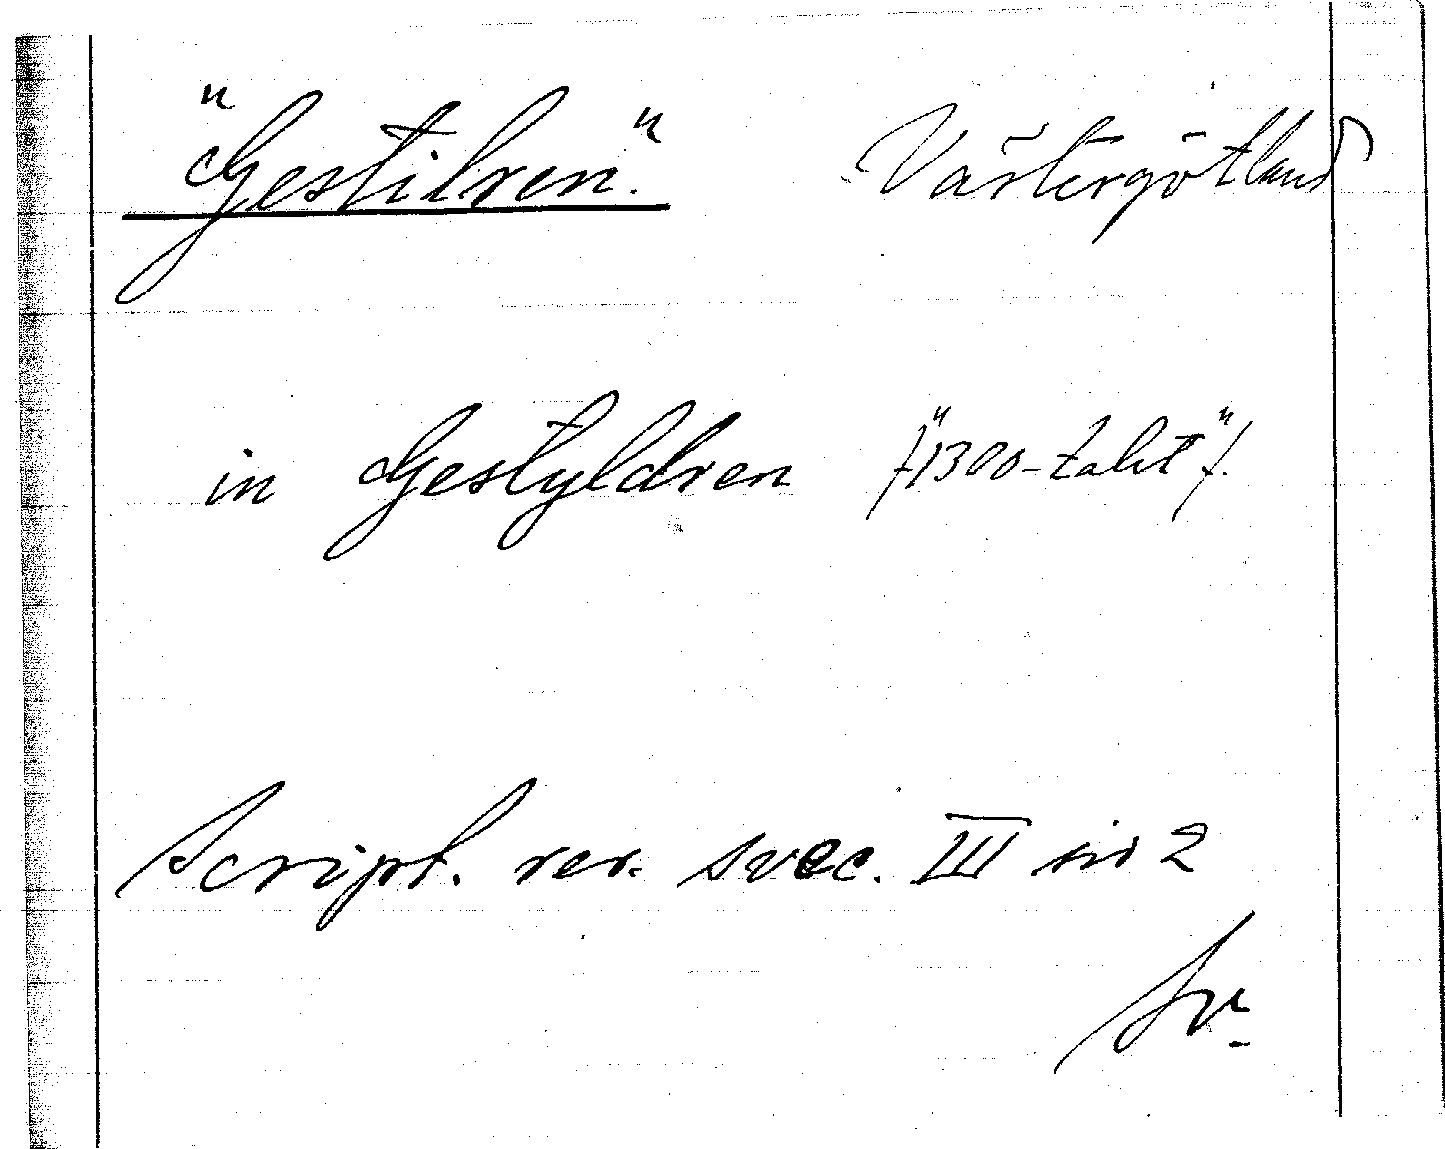 "Gestilren." Västergötland
in Gestyldren /"1300-talet"/.
Script. rer. svec. III sid 2
Sv.